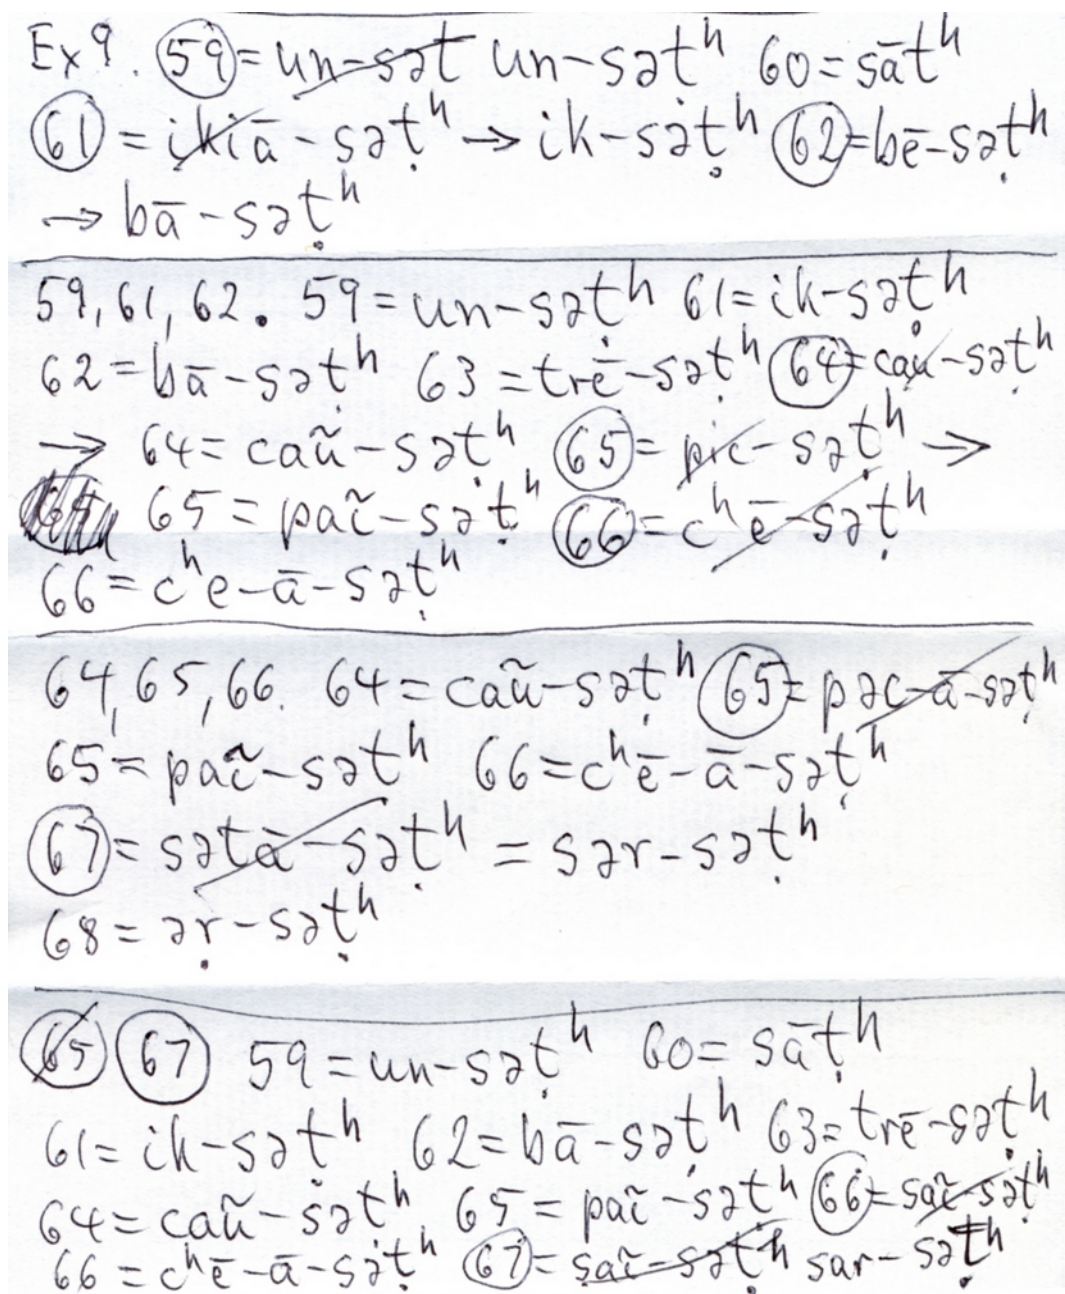 Ex 9. 59 = un-sət un-səṭʰ 60 = sāṭʰ
61 = ikiā-səṭʰ → ik-səṭʰ 62 = bē-səṭʰ
→ bā-səṭʰ
59, 61, 62. 59 = un-səṭʰ 61 = ik-səṭʰ
62 = bā-səṭʰ 63 = trē-səṭʰ 64 = cau-səṭʰ
→ 64 = caũ-səṭʰ 65 = pic-səṭʰ →
65 = paĩ-səṭʰ 66 = cʰē-səṭʰ
66 = cʰe-ā-səṭʰ
64, 65, 66. 64 = caũ-səṭʰ 65 = pəc-ā-səṭʰ
65 = paĩ-səṭʰ 66 = cʰē-ā-səṭʰ
67 = sətā-səṭʰ = sər-səṭʰ
68 = əṛ-səṭʰ
65 67 59 = un-səṭʰ 60 = sāṭʰ
61 = ik-səṭʰ 62 = bā-səṭʰ 63 = trē-səṭʰ
64 = caũ-səṭʰ 65 = paĩ-səṭʰ 66 = saĩ-səṭʰ
66 = cʰē-ā-səṭʰ 67 = saĩ-səṭʰ sar-səṭʰ